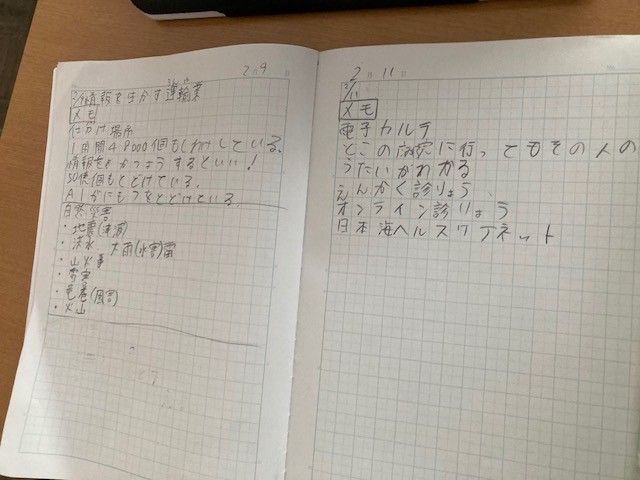 2 9
㋛情報を生かす運輸業
メモ
仕分け場所
1時間48000個もしわけしている。
情報をかつようするといい！
50億個もとどけている。
AIがにもつをとどけている
自然災害
・地震(津波)
・洪水 大雨(水害)雷
・山火事
・雪害
・竜巻(風害)
・火山
2 11
2/11
メモ
電子カルテ
どこの病院に行ってもその人の
うたいがわかる
えんかく診りょう
オンライン診りょう
日本海ヘルスケアネット